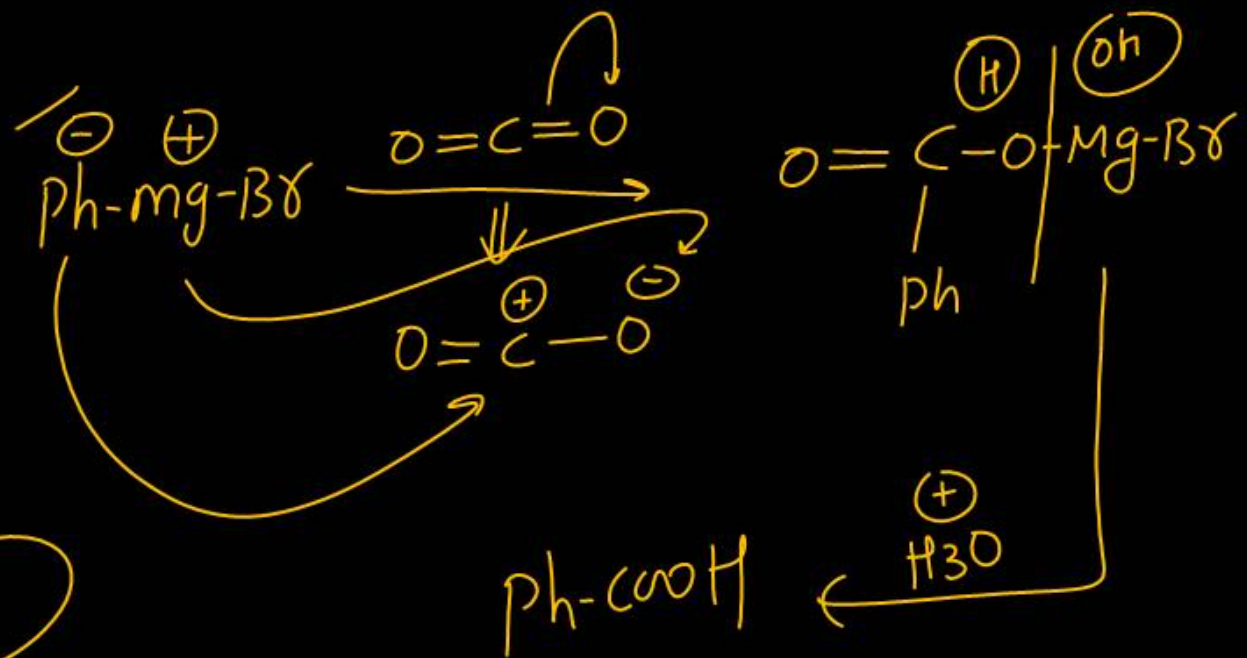 ⊖ ⊕
Ph-mg-Br
O=C=O
⊕ ⊖
O=C—O
H oh
O=C-O-Mg-Br
Ph
⊕
H3O
Ph-COOH